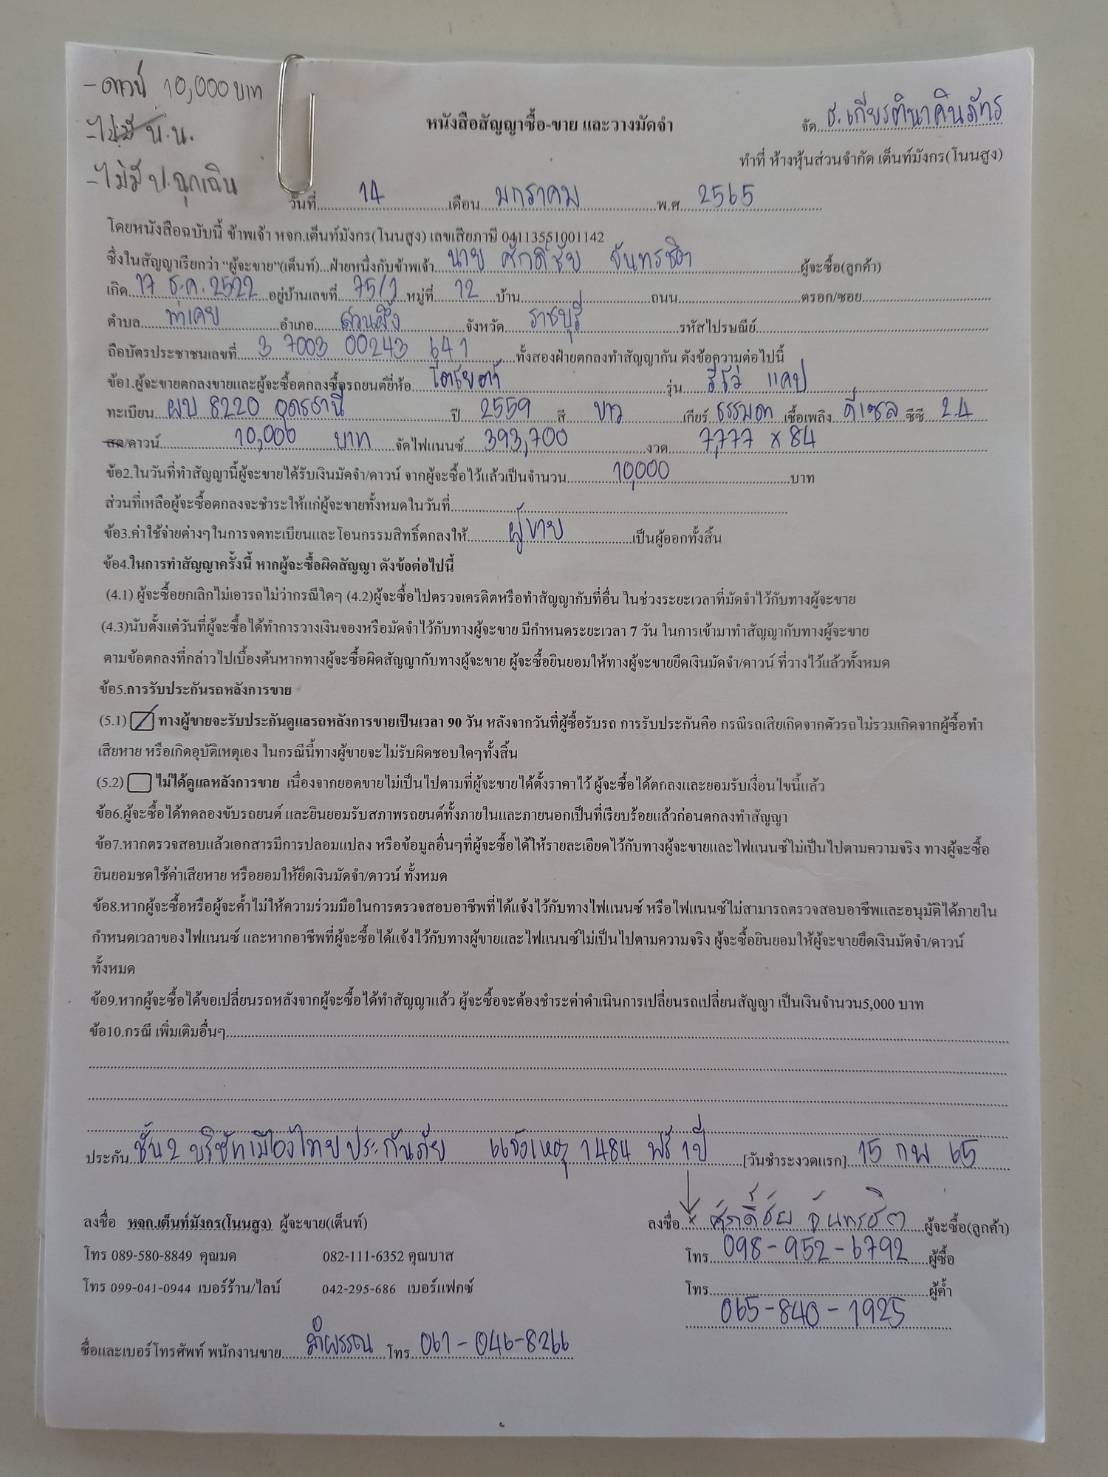 - ดาวน์ 10,000 บาท
- ไม่มี น.น.
- ไม่มี ป.ฉุกเฉิน
หนังสือสัญญาซื้อ-ขาย และวางมัดจำ
จัด ธ.เกียรตินาคินภัทร
ทำที่ ห้างหุ้นส่วนจำกัด เต็นท์มังกร(โนนสูง)
วันที่ 14 เดือน มกราคม พ.ศ. 2565
โดยหนังสือฉบับนี้ ข้าพเจ้า หจก.เต็นท์มังกร(โนนสูง) เลขเสียภาษี 04113551001142
ซึ่งในสัญญาเรียกว่า "ผู้จะขาย"(เต็นท์)...ฝ่ายหนึ่งกับข้าพเจ้า นาย ศักดิ์ชัย จันทรชิต ผู้จะซื้อ(ลูกค้า)
เกิด 17 ธ.ค. 2522 อยู่บ้านเลขที่ 75/1 หมู่ที่ 12 บ้าน ถนน ตรอก/ซอย
ตำบล ท่าเคย อำเภอ สวนผึ้ง จังหวัด ราชบุรี รหัสไปรษณีย์
ถือบัตรประชาชนเลขที่ 3 7003 00243 641 ทั้งสองฝ่ายตกลงทำสัญญากัน ดังข้อความต่อไปนี้
ข้อ1.ผู้จะขายตกลงขายและผู้จะซื้อตกลงซื้อรถยนต์ยี่ห้อ โตโยต้า รุ่น รีโว่ แคป
ทะเบียน ผบ 8220 อุดรธานี ปี 2559 สี ขาว เกียร์ ธรรมดา เชื้อเพลิง ดีเซล ซีซี 2.4
สด/ดาวน์ 10,000 บาท จัดไฟแนนซ์ 393,700 งวด 7,777 x 84
ข้อ2.ในวันที่ทำสัญญานี้ผู้จะขายได้รับเงินมัดจำ/ดาวน์ จากผู้จะซื้อไว้แล้วเป็นจำนวน 10,000 บาท
ส่วนที่เหลือผู้จะซื้อตกลงจะชำระให้แก่ผู้จะขายทั้งหมดในวันที่
ข้อ3.ค่าใช้จ่ายต่างๆในการจดทะเบียนและโอนกรรมสิทธิ์ตกลงให้ ผู้ขาย เป็นผู้ออกทั้งสิ้น
ข้อ4.ในการทำสัญญาครั้งนี้ หากผู้จะซื้อผิดสัญญา ดังข้อต่อไปนี้
(4.1) ผู้จะซื้อยกเลิกไม่เอารถไม่ว่ากรณีใดๆ (4.2)ผู้จะซื้อไปตรวจเครดิตหรือทำสัญญากับที่อื่น ในช่วงระยะเวลาที่มัดจำไว้กับทางผู้จะขาย
(4.3)นับตั้งแต่วันที่ผู้จะซื้อได้ทำการวางเงินจองหรือมัดจำไว้กับทางผู้จะขาย มีกำหนดระยะเวลา 7 วัน ในการเข้ามาทำสัญญากับทางผู้จะขาย
ตามข้อตกลงที่กล่าวไปเบื้องต้นหากทางผู้จะซื้อผิดสัญญากับทางผู้จะขาย ผู้จะซื้อยินยอมให้ทางผู้จะขายยึดเงินมัดจำ/ดาวน์ ที่วางไว้แล้วทั้งหมด
ข้อ5.การรับประกันรถหลังการขาย
(5.1) ทางผู้ขายจะรับประกันดูแลรถหลังการขายเป็นเวลา 90 วัน หลังจากวันที่ผู้ซื้อรับรถ การรับประกันคือ กรณีรถเสียเกิดจากตัวรถ ไม่รวมเกิดจากผู้ซื้อทำ
เสียหาย หรือเกิดอุบัติเหตุเอง ในกรณีนี้ทางผู้ขายจะไม่รับผิดชอบใดๆทั้งสิ้น
(5.2) ไม่ได้ดูแลหลังการขาย เนื่องจากยอดขายไม่เป็นไปตามที่ผู้จะขายได้ตั้งราคาไว้ ผู้จะซื้อได้ตกลงและยอมรับเงื่อนไขนี้แล้ว
ข้อ6.ผู้จะซื้อได้ทดลองขับรถยนต์ และยินยอมรับสภาพรถยนต์ทั้งภายในและภายนอกเป็นที่เรียบร้อยแล้วก่อนตกลงทำสัญญา
ข้อ7.หากตรวจสอบแล้วเอกสารมีการปลอมแปลง หรือข้อมูลอื่นๆที่ผู้จะซื้อได้ให้รายละเอียดไว้กับทางผู้จะขายและไฟแนนซ์ไม่เป็นไปตามความจริง ทางผู้จะซื้อ
ยินยอมชดใช้ค่าเสียหาย หรือยอมให้ยึดเงินมัดจำ/ดาวน์ ทั้งหมด
ข้อ8.หากผู้จะซื้อหรือผู้จะค้ำไม่ให้ความร่วมมือในการตรวจสอบอาชีพที่ได้แจ้งไว้กับทางไฟแนนซ์ หรือไฟแนนซ์ไม่สามารถตรวจสอบอาชีพและอนุมัติได้ภายใน
กำหนดเวลาของไฟแนนซ์ และหากอาชีพที่ผู้จะซื้อได้แจ้งไว้กับทางผู้ขายและไฟแนนซ์ไม่เป็นไปตามความจริง ผู้จะซื้อยินยอมให้ผู้จะขายยึดเงินมัดจำ/ดาวน์
ทั้งหมด
ข้อ9.หากผู้จะซื้อได้ขอเปลี่ยนรถหลังจากผู้จะซื้อได้ทำสัญญาแล้ว ผู้จะซื้อจะต้องชำระค่าดำเนินการเปลี่ยนรถเปลี่ยนสัญญา เป็นเงินจำนวน5,000 บาท
ข้อ10.กรณี เพิ่มเติมอื่นๆ
ประกัน ชั้น 2 บริษัทเมืองไทยประกันภัย แจ้งเหตุ 1484 ฟรี 1 ปี [วันชำระงวดแรก] 15 กพ 65
ลงชื่อ หจก.เต็นท์มังกร(โนนสูง) ผู้จะขาย(เต็นท์) ลงชื่อ x ศักดิ์ชัย จันทรชิต ผู้จะซื้อ(ลูกค้า)
โทร 089-580-8849 คุณมด 082-111-6352 คุณบาส โทร 098-952-6792 ผู้ซื้อ
โทร 099-041-0944 เบอร์ร้าน/ไลน์ 042-295-686 เบอร์แฟกซ์ โทร ผู้ค้ำ
065-840-1925
ชื่อและเบอร์โทรศัพท์ พนักงานขาย โทร 061-046-8266